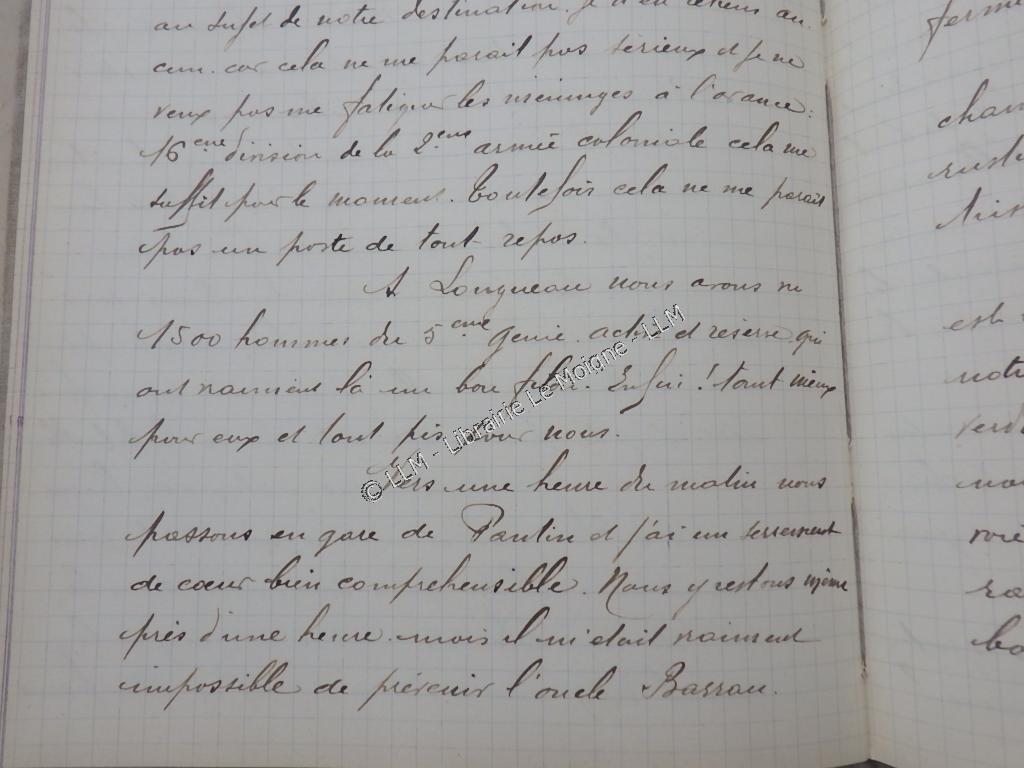 au sujet de notre destination. Je n'en retiens au-
cun. car cela ne me parait pas sérieux et je ne
veux pas me fatiguer les méninges à l'avance:
16eme division de la 2eme armée coloniale cela me
suffit pour le moment. Toutefois cela ne me parait
pas un poste de tout repos.
A Longueau nous avons vu
1500 hommes du 5eme génie. active et réserve qui
ont vraiment là un bon filon. Enfin! tant mieux
pour eux et tant pis pour nous.
Vers une heure du matin nous
passons en gare de Pantin et j'ai un serrement
de cœur bien compréhensible. Nous y restons même
près d'une heure. mais il m'était vraiment
impossible de prévenir l'oncle
© LLM - Librairie Le Moigne - LLM
ferme
cham
est
notre